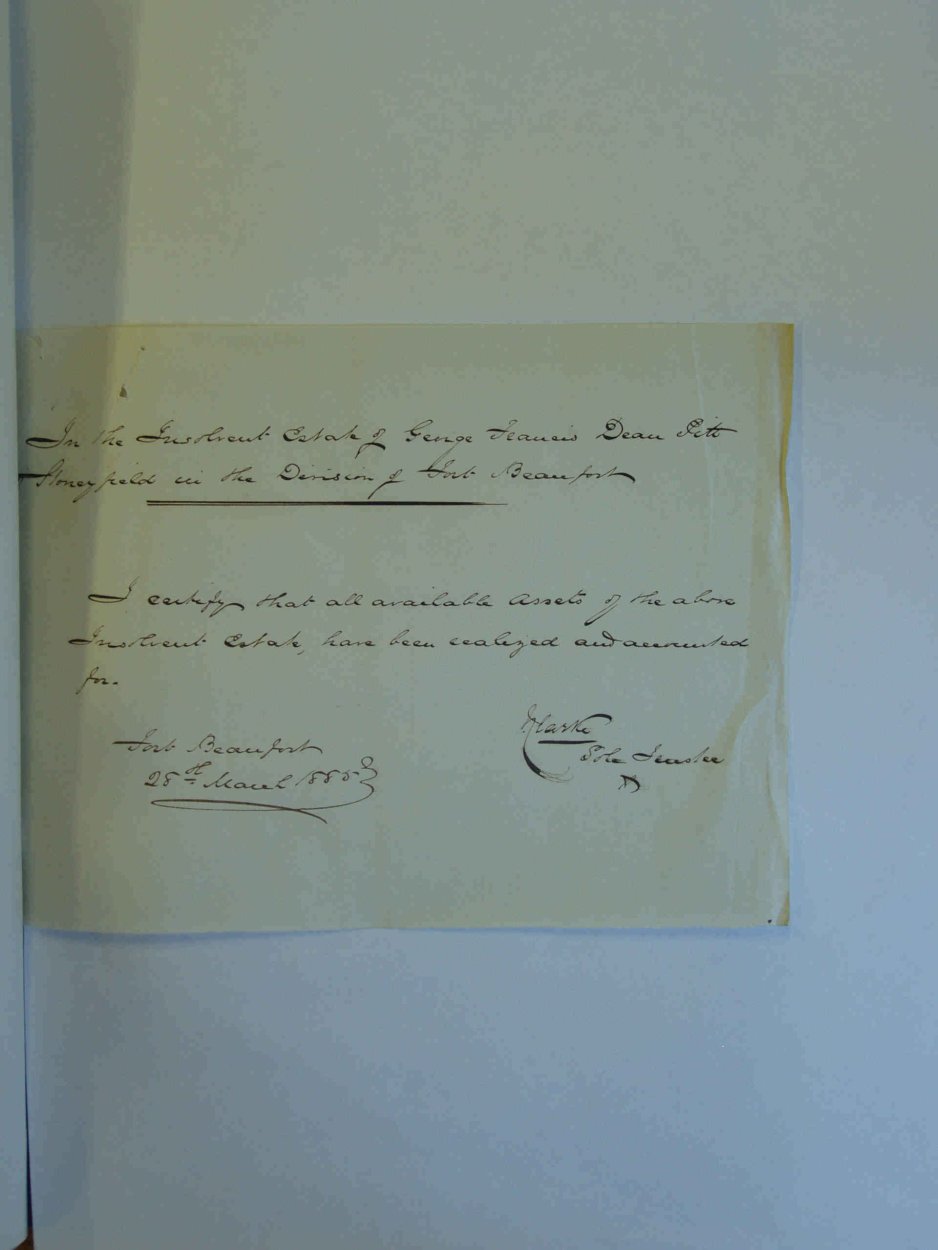 In the Insolvent Estate of George Francis Dean Pitt
Stoneyfield in the Division of Fort Beaufort
I certify that all available assets of the above
Insolvent Estate, have been realized and accounted
for.
Clarke
Sole Trustee
Fort Beaufort
28th March 1885